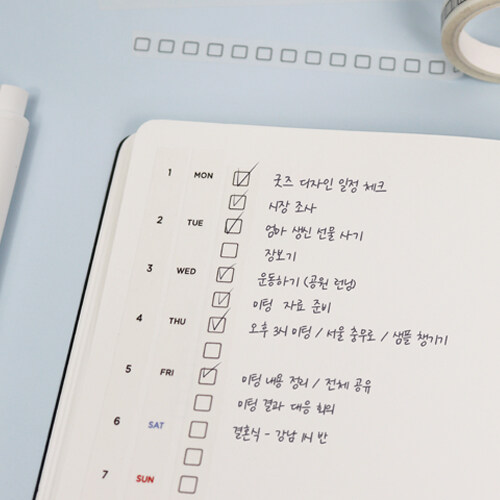 1 MON 굿즈 디자인 일정 체크
시장 조사
2 TUE 엄마 생신 선물 사기
장보기
3 WED 운동하기 (공원 런닝)
미팅 자료 준비
4 THU 오후 3시 미팅 / 서울 충무로 / 샘플 챙기기
5 FRI 미팅 내용 정리 / 전체 공유
미팅 결과 대응 회의
6 SAT 결혼식 - 강남 1시 반
7 SUN